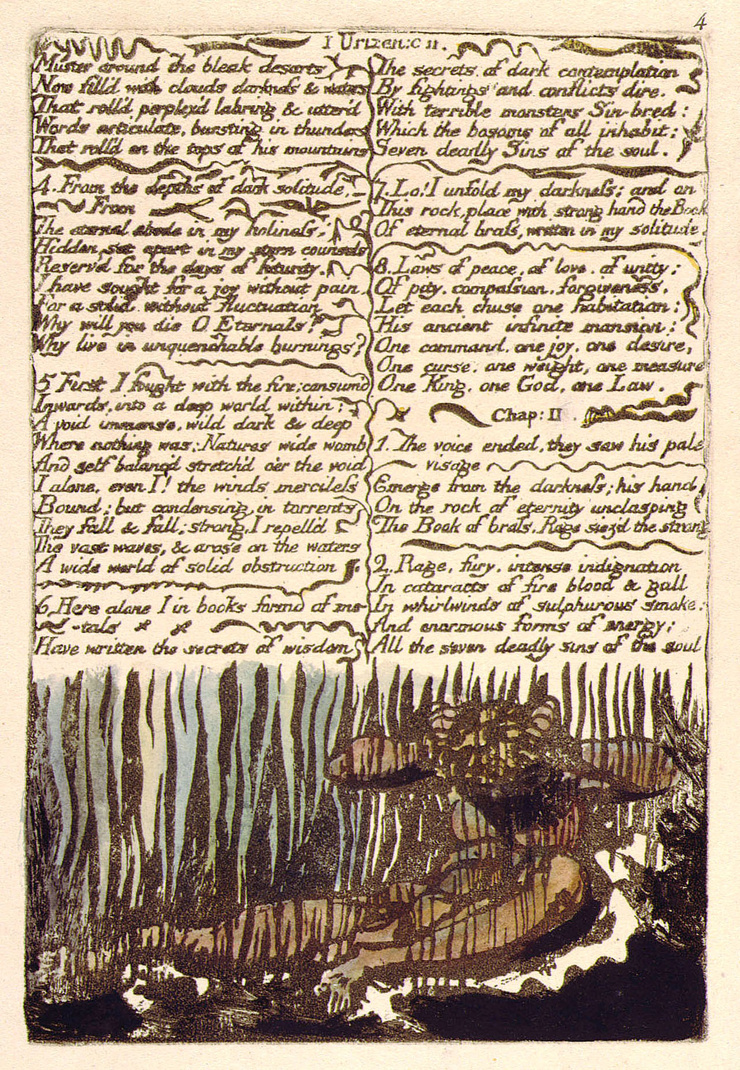 4
I Urizen: C II.
Muster around the bleak desarts
Now fill'd with clouds darkneſs & waters
That roll'd perplex'd labring & utter'd
Words articulate, bursting in thunders
That roll'd on the tops of his mountains
4. From the depths of dark solitude.
From
The eternal abode in my holineſs;
Hidden, set apart in my stern counsels
Reserv'd for the days of futurity.
I have sought for a joy without pain
For a solid without fluctuation
Why will you die O Eternals?
Why live in unquenchable burnings?
5 First I fought with the fire; consum'd
Inwards, into a deep world within:
A void immense, wild dark & deep
Where nothing was; Natures wide womb
And self balanc'd stretch'd o'er the void
I alone, even I! the winds mercileſs
Bound; but condensing, in torrents
They fall & fall; strong, I repell'd
The vast waves, & arose on the waters
A wide world of solid obstruction
6. Here alone I in books form'd of me-
-tals
Have written the secrets of wisdom
The secrets of dark contemplation
By fightings and conflicts dire.
With terrible monsters Sin-bred:
Which the bosoms of all inhabit;
Seven deadly Sins of the soul.
7. Lo! I unfold my darkneſs; and on
This rock, place with strong hand the Book
Of eternal braſs, written in my solitude.
8. Laws of peace, of love, of unity;
Of pity, compaſsion, forgiveneſs.
Let each chuse one habitation;
His ancient infinite mansion;
One command, one joy, one desire,
One curse, one weight, one measure
One King, one God, one Law.
Chap: II
1. The voice ended, they saw his pale
visage
Emerge from the darkneſs; his hand
On the rock of eternity unclasping
The Book of braſs. Rage siez'd the strong
2. Rage, fury, intense indignation
In cataracts of fire blood & gall
In whirlwinds of sulphurous smoke:
And enormous forms of energy;
All the seven deadly sins of the soul